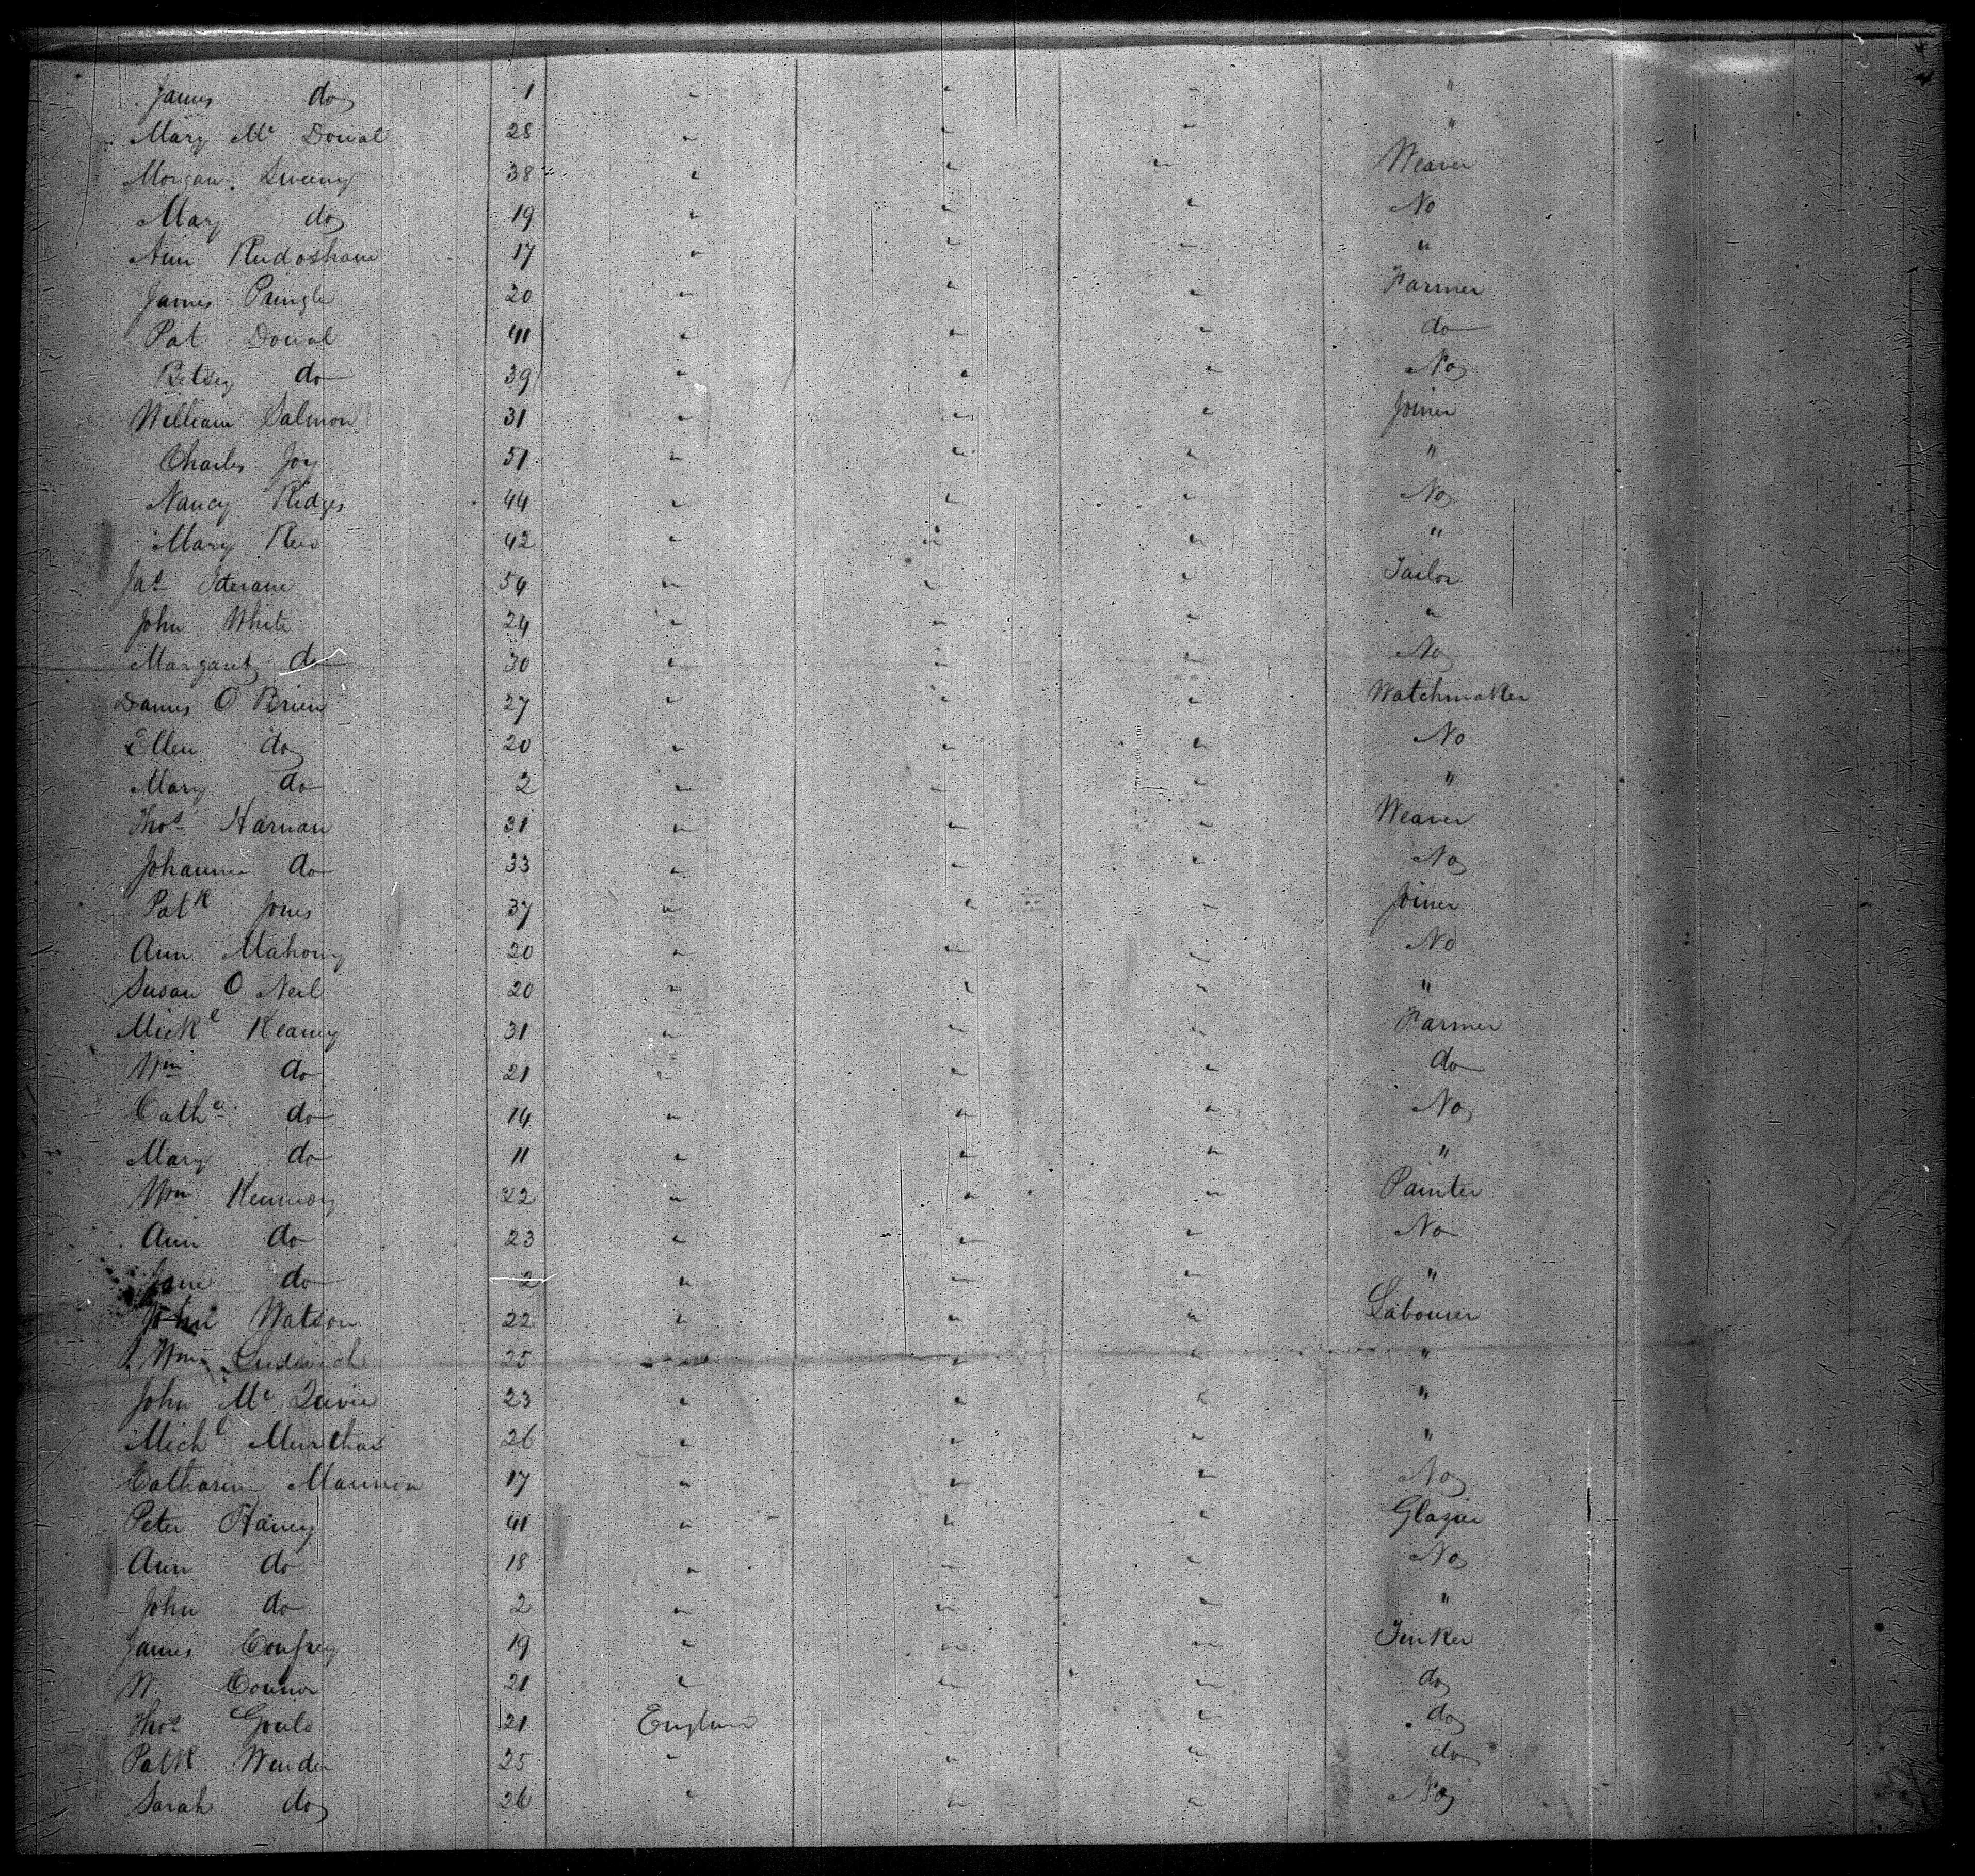 James do 1 " " " "
Mary Mc Doual 28 " " " "
Morgan Sweeny 38 " " " Weaver
Mary do 19 " " " No
Ann 17 " " " "
James Pringle 20 " " " Farmer
Pat Doual 41 " " " do
Betsey do 39 " " " No
William Salmon 31 " " " Joiner
Charles Joy 51 " " " "
Nancy Ridges 44 " " " No
Mary 42 " " " "
Jas 54 " " " Tailor
John White 24 " " " "
Margaret do 30 " " " No
O Brien 27 " " " Watchmaker
Ellen do 20 " " " No
Mary do 2 " " " "
Thos Harnan 31 " " " Weaver
Johanna do 33 " " " No
Patk Jones 37 " " " Joiner
Ann Mahony 20 " " " No
Susan O Neil 20 " " " "
Mickl Keany 31 " " " Farmer
Wm do 21 " " " do
Cathe do 14 " " " No
Mary do 11 " " " "
Wm 22 " " " Painter
Ann do 23 " " " No
Jane do 2 " " " "
John Watson 22 " " " Labourer
Wm 25 " " " "
John Mc 23 " " " "
Michl 26 " " " "
Catharine Mannon 17 " " " No
Peter Haney 41 " " " Glazier
Ann do 18 " " " No
John do 2 " " " "
James Confrey 19 " " " Tinker
W. Connor 21 " " " do
Thos Gould 21 England " do
Patk 25 " " " do
Sarah do 26 " " " No